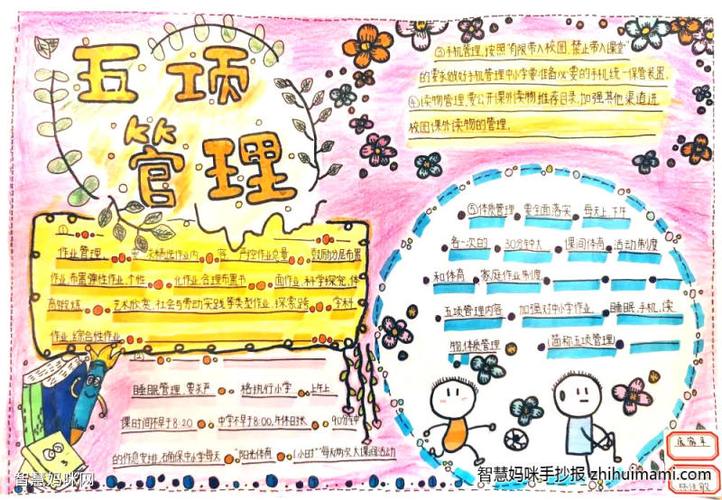 五项
管理
③手机管理,按照"有限带入校园 禁止带入课堂"
的要求做好手机管理中小学要准备 要的手机统一保管装置.
④读物管理,要公开课外读物推荐目录,加强其他渠道进
校园课外读物的管理.
作业管理. 严控作业总量 鼓励分层布置
作业布置弹性作业,个性 化作业 合理布置书 面作业,科学探究,体
艺术欣赏,社会与劳动实践等类型作业,探索跨 学科
作业,综合性作业
睡眠管理,要求严 格执行小学 上午上
课时间不早于8:20 中学不早于8:00,午休日长 90分钟
的作息安排,确保中小学每天 "阳光体育 1小时"每天两次大课间活动
⑤体质管理 要全面落实 每天上、下午
各一次的 30分钟大 课间体育 活动制度
和体育 家庭作业制度
五项管理内容 加强对中小学作业 睡眠,手机,读
物,体质管理 简称五项管理
智慧妈咪网
智慧妈咪手抄报 zhihuimami.com